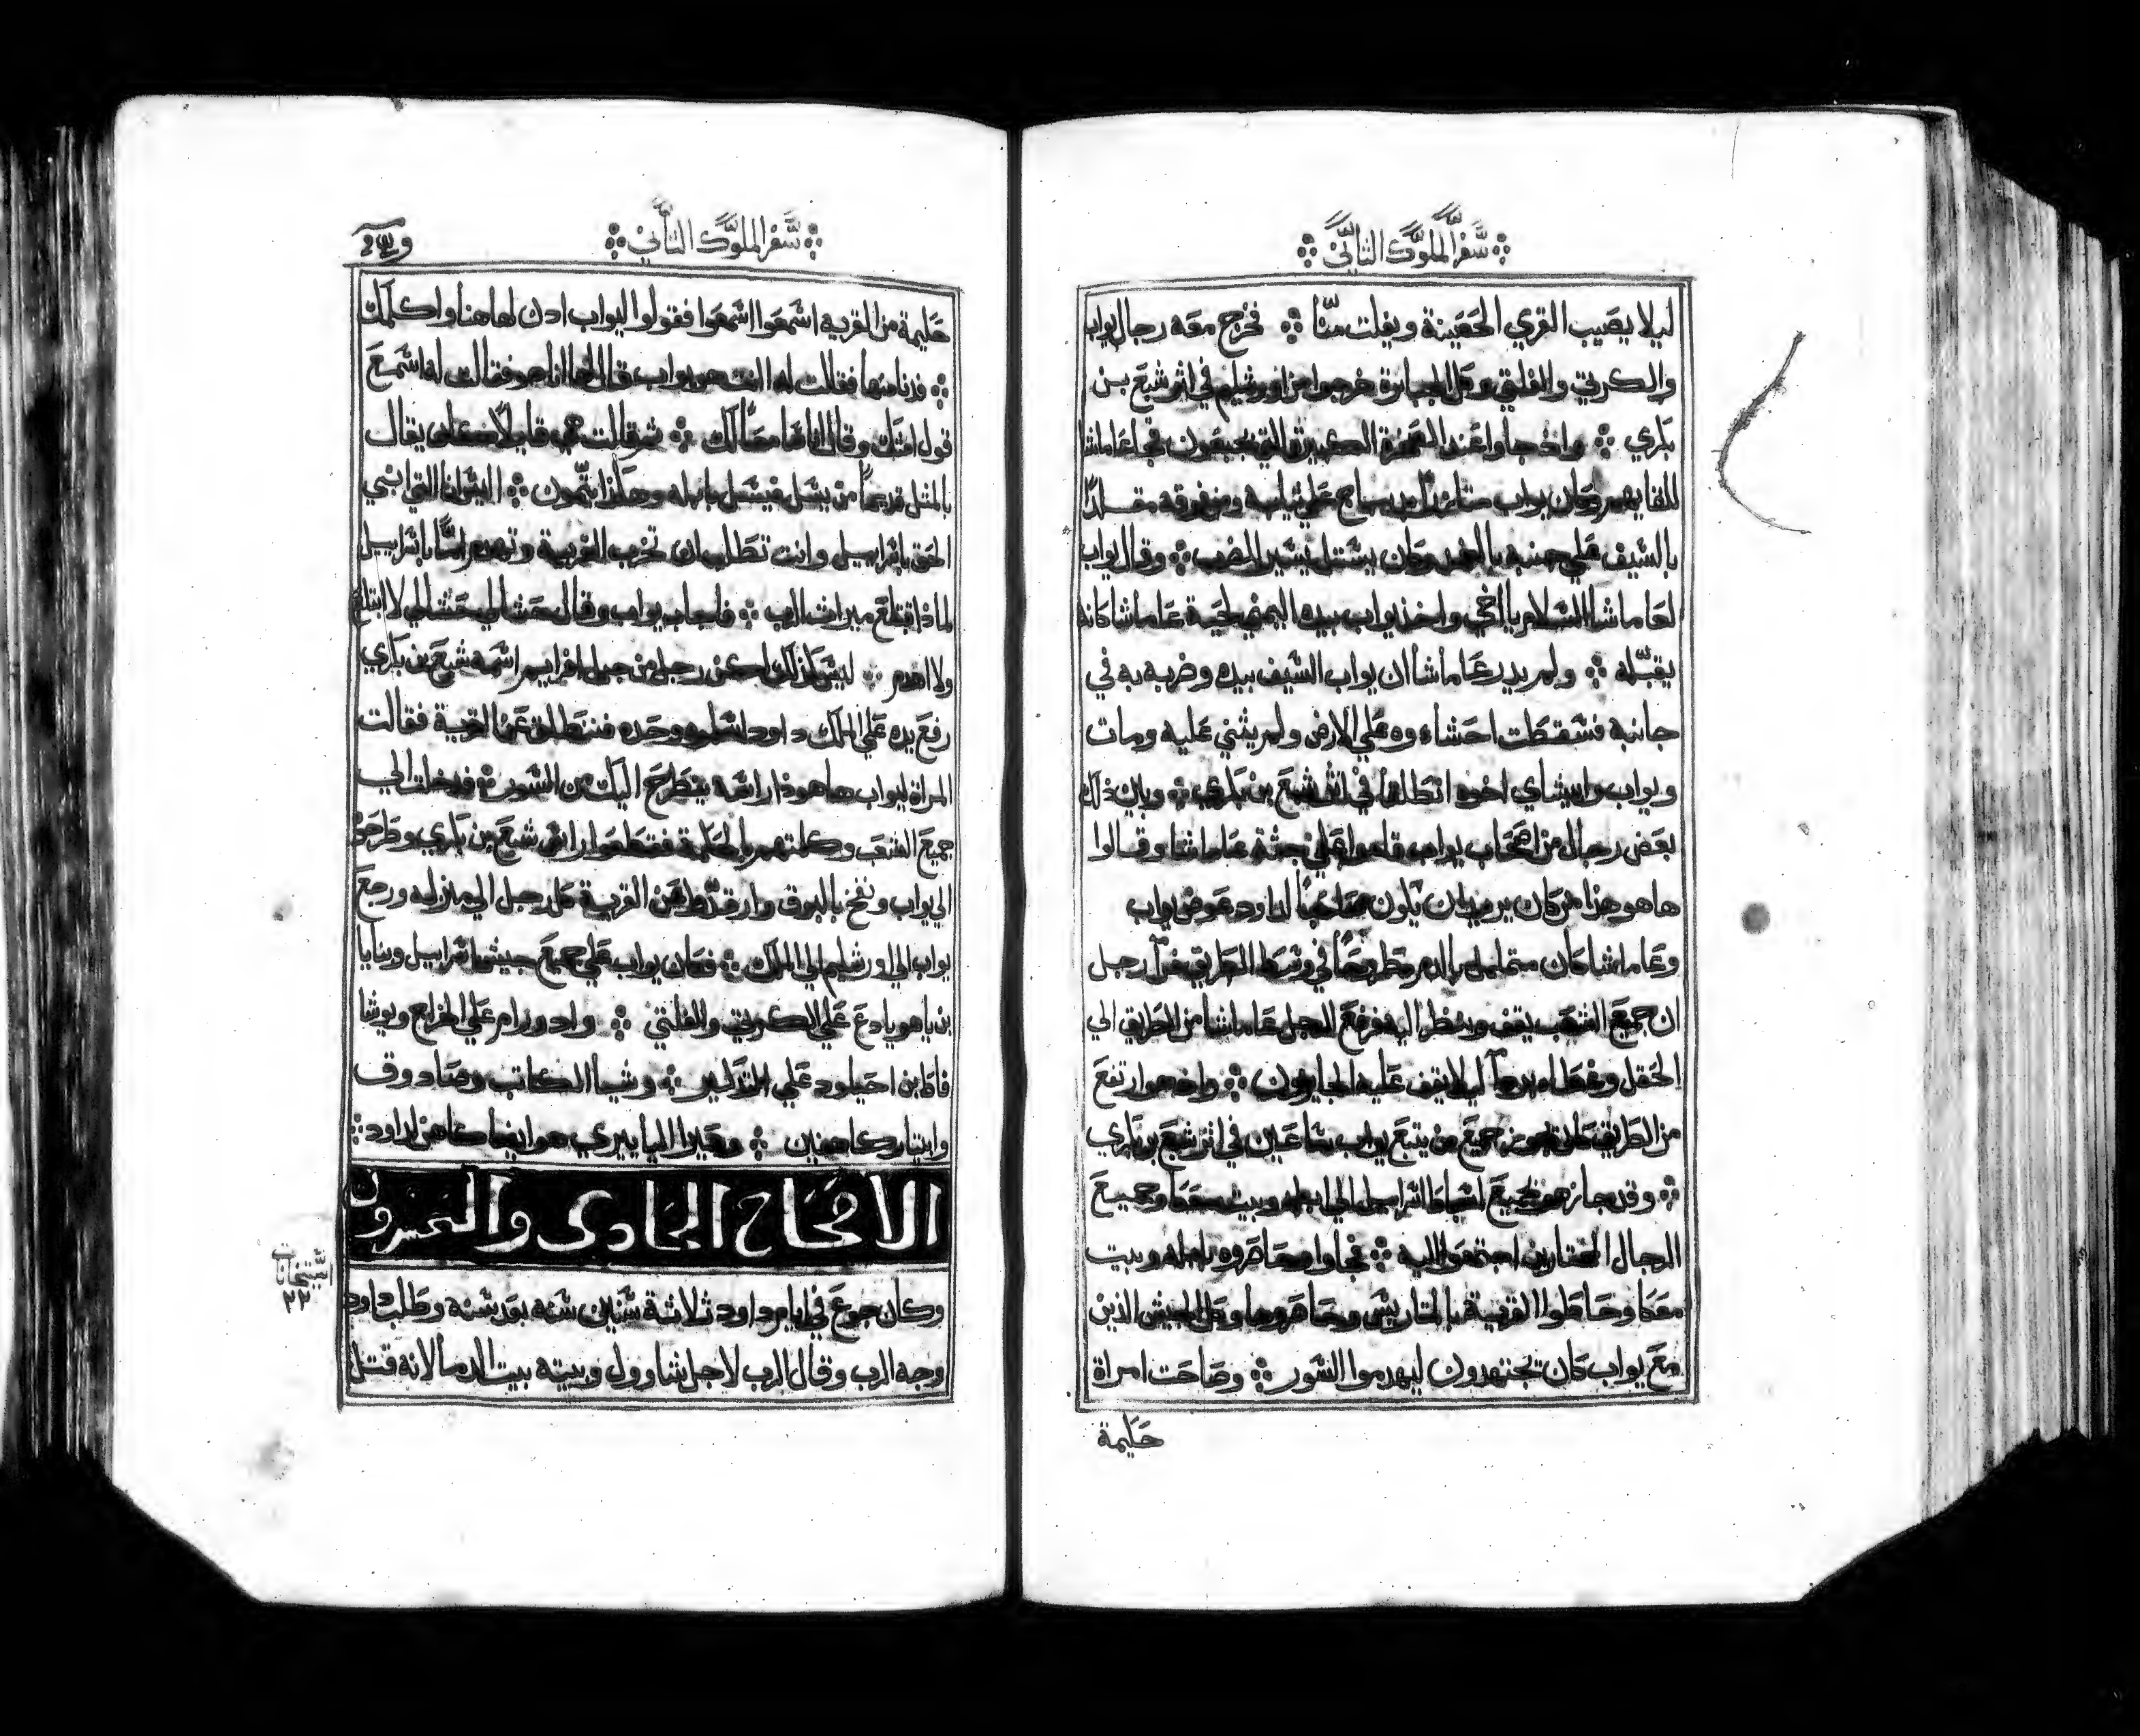 سفر الملوك التاني
ليلا يصيب القري الحصينة ويفلت منا فخرج معه رجال يواب
والكريتي والفلتي وكل الجبابرة خرجوا من اورشليم في اثر شبع بن
باري واذ جاوا عند الصخرة الكبيرة التي بجبعون فجا عاماشا
للقايهم وكان يواب علي ثيابه ومن فوقه متقلدا
بالسيف علي جنبه وقال يواب
لعاماشا السلام يا اخي واخذ يواب بيده اليمني لحية عاماشا كانه
يقبله ولم يدر عاماشا ان يواب السيف بيده وضربه به في
جانبه فسقطت احشاءوه علي الارض ولم يثني عليه ومات
ويواب وابيشاي اخوه انطلقا في اثر شبع بن باري وباين ذلك
بعض رجال من اصحاب يواب قاموا علي جثة عاماشا وقالوا
هاهو هذا من كان يريد ان يكون صاحبا لداود عوض يواب
وعاماشا كان بالدم مطروحا في وسط الطريق فراي رجل
ان جميع الشعب يقف وينظر اليه فرفع الرجل عاماشا من الطريق الي
الحقل ليلا يقف عليه الجايزون واذ هو ارتفع
من الطريق كان يجوز جميع من يتبع يواب ساعين في اثر شبع بن باري
وقد جاز هو جميع اسباط اسراييل الي ابيله وبيت معكا وجميع
الرجال المختارين اجتمعوا اليه فجاوا وحاصروه بابيله وبيت
معكا وحاطوا القرية بالمتاريس وحاصروها وكل الجيش الذين
مع يواب كان تجتهدون ليهدموا السور وصاحت امراة
حكيمة
سفر الملوك التاني
حكيمة من القريه اسمعوا اسمعوا فقولوا ليواب ادن لهاهنا واكلمك
فدنا منها فقالت له انت هو يواب قال لها انا هو فقالت له اسمع
قول امتك وقال انا سامعا لك ثم قالت هي قايلا يقال
بالمثل قديما من يسل فيسل بابيله وهكذا يتمون اليس انا التي ابني
الحق باسراييل وانت تطلب ان تخرب القرية وتهدم اما باسراييل
لماذا تبتلع ميراث الرب فاجاب يواب وقال حشا لي حشا لي لا ابتلع
ولا اهدم ليس كذلك لكن رجل من جبل افرايم اسمه شبع بن باري
رفع يده علي الملك داود اسلموه وحده فننطلق عن القرية فقالت
المراة ليواب هاهوذا راسه ينطرح اليك من السور فدخلت الي
جميع الشعب وكلمتهم بالحكمة فقطعوا راس شبع بن باري وطرحوه
الي يواب ونفخ بالبوق عن القرية كل رجل الي منزله ورجع
يواب الي اورشليم الي الملك فكان يواب علي جميع جيش اسراييل وبنايا
بن ياهوياداع علي الكريتي والفلتي وادورام علي الخراج ويوشا
فاط ابن احيلود علي التذكير وشيا الكاتب وصادوق
وابيتار كاهنين وعيرا الياييري هو ايضا كاهن لداود
الاصحاح الحادي والعشرون
وكان جوع في ايام داود ثلاثة سنين سنه بعد سنه وطلب داود
وجه الرب وقال الرب لاجل شاوول وبيته بيت الدما لانه قتل
٢٢